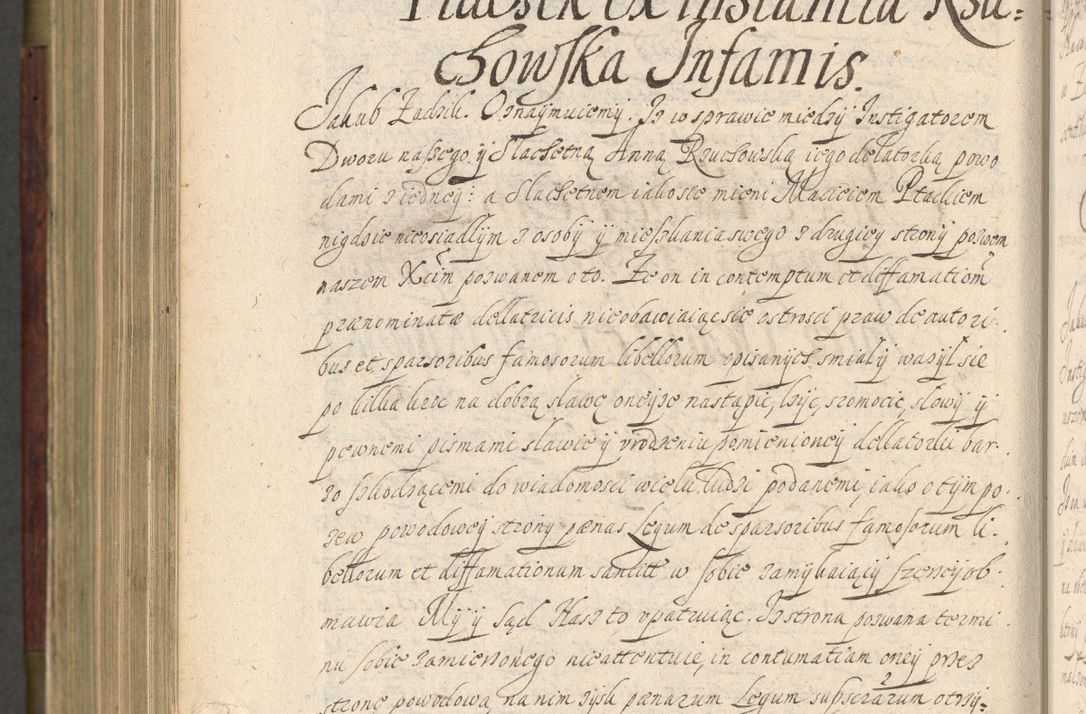 Ptaesik ex instantia Rzu=
chowska Infamis.
Jakub Zadzik. Oznaymuiemy. Iz w sprawie miedzy Instigatorem
Dworu naszego y Slachetną Anną Rzuchowską iego delatorką powo
dami z iedney: a Slachetnem iakosie mieni Macieiem Ptackiem
nigdzie nieosiadłym z osoby y mieszkania swego z drugiey strony pozwem
naszem Xcim pozwanem o to. Ze on in contemptum et diffamationem
prænominatæ dellatricis nieobawiaiąc sie ostrosci praw de autori
bus et sparsoribus famosorum libellorum opisanych smiał y wazył sie
po kilka kroc na dobrą sławę oneyze nastąpic, lzyc, sromocic, słowy y
pewnemi pismami sławie y vrodzeniu pomienioney dellatorki bar
zo szkodzącemi do wiadomosci wielu ludzi podanemi, iako o tym po
zew powodowey strony pænas Legum de sparsoribus famosorum li
bellorum et diffamationum sancitæ w sobie zamykaiący szerzey ob
mawia My y Sąd Nasz to vpatruiąc. Iz strona pozwana termi
nu sobie zamierzonego nieattentuie, in contumatiam oney przez
stronę powodową na nim zysk pænarum Legum supscrarum otrzy=